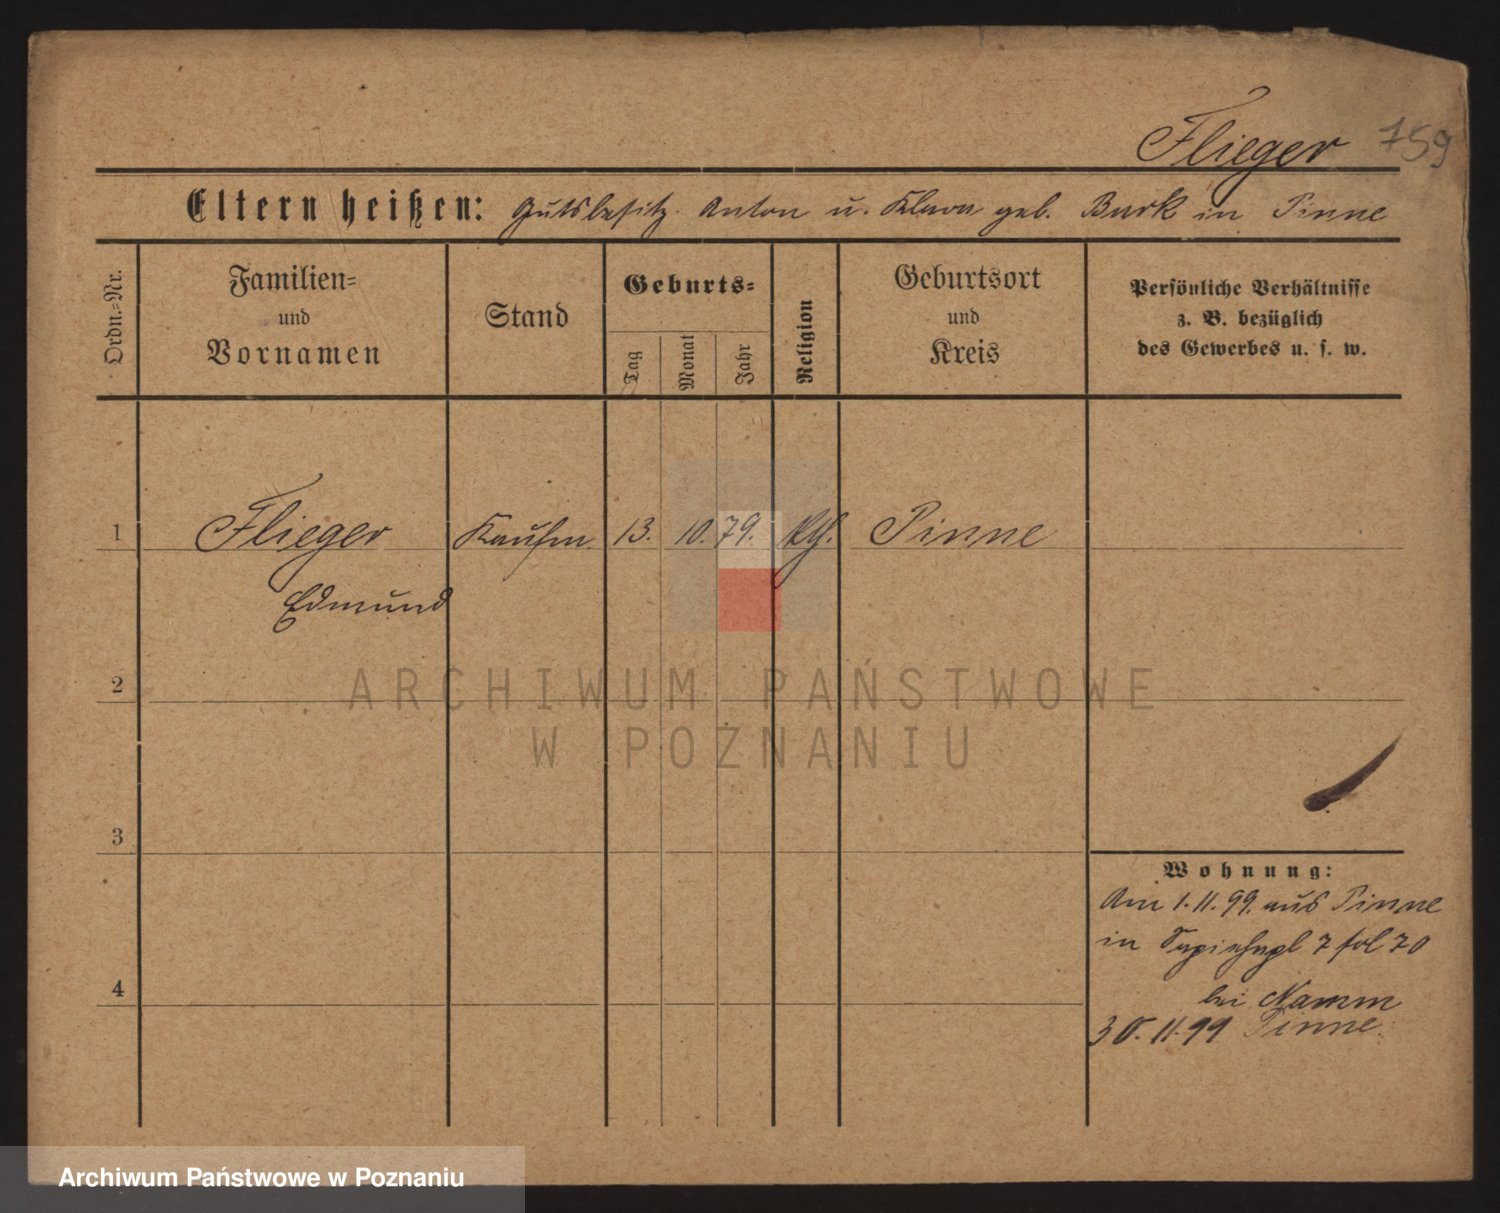 Flieger 759
Eltern heißen: Gutsbesitz. Anton u. Klara geb. Burk in Pinne
Ordn.-Nr.
Familien-
und
Vornamen
Stand
Geburts-
Tag
Monat
Jahr
Religion
Geburtsort
und
Kreis
Persönliche Verhältnisse
z. B. bezüglich
des Gewerbes u. s. w.
1 Flieger Kaufm. 13. 10. 79. kth. Pinne
Edmund
2
ARCHIWUM PAŃSTWOWE
W POZNANIU
3
Wohnung:
Am 1. 11. 99. aus Pinne
in 7 fol 70
4
bei Namm
30. 11. 99 Pinne.
Archiwum Państwowe w Poznaniu